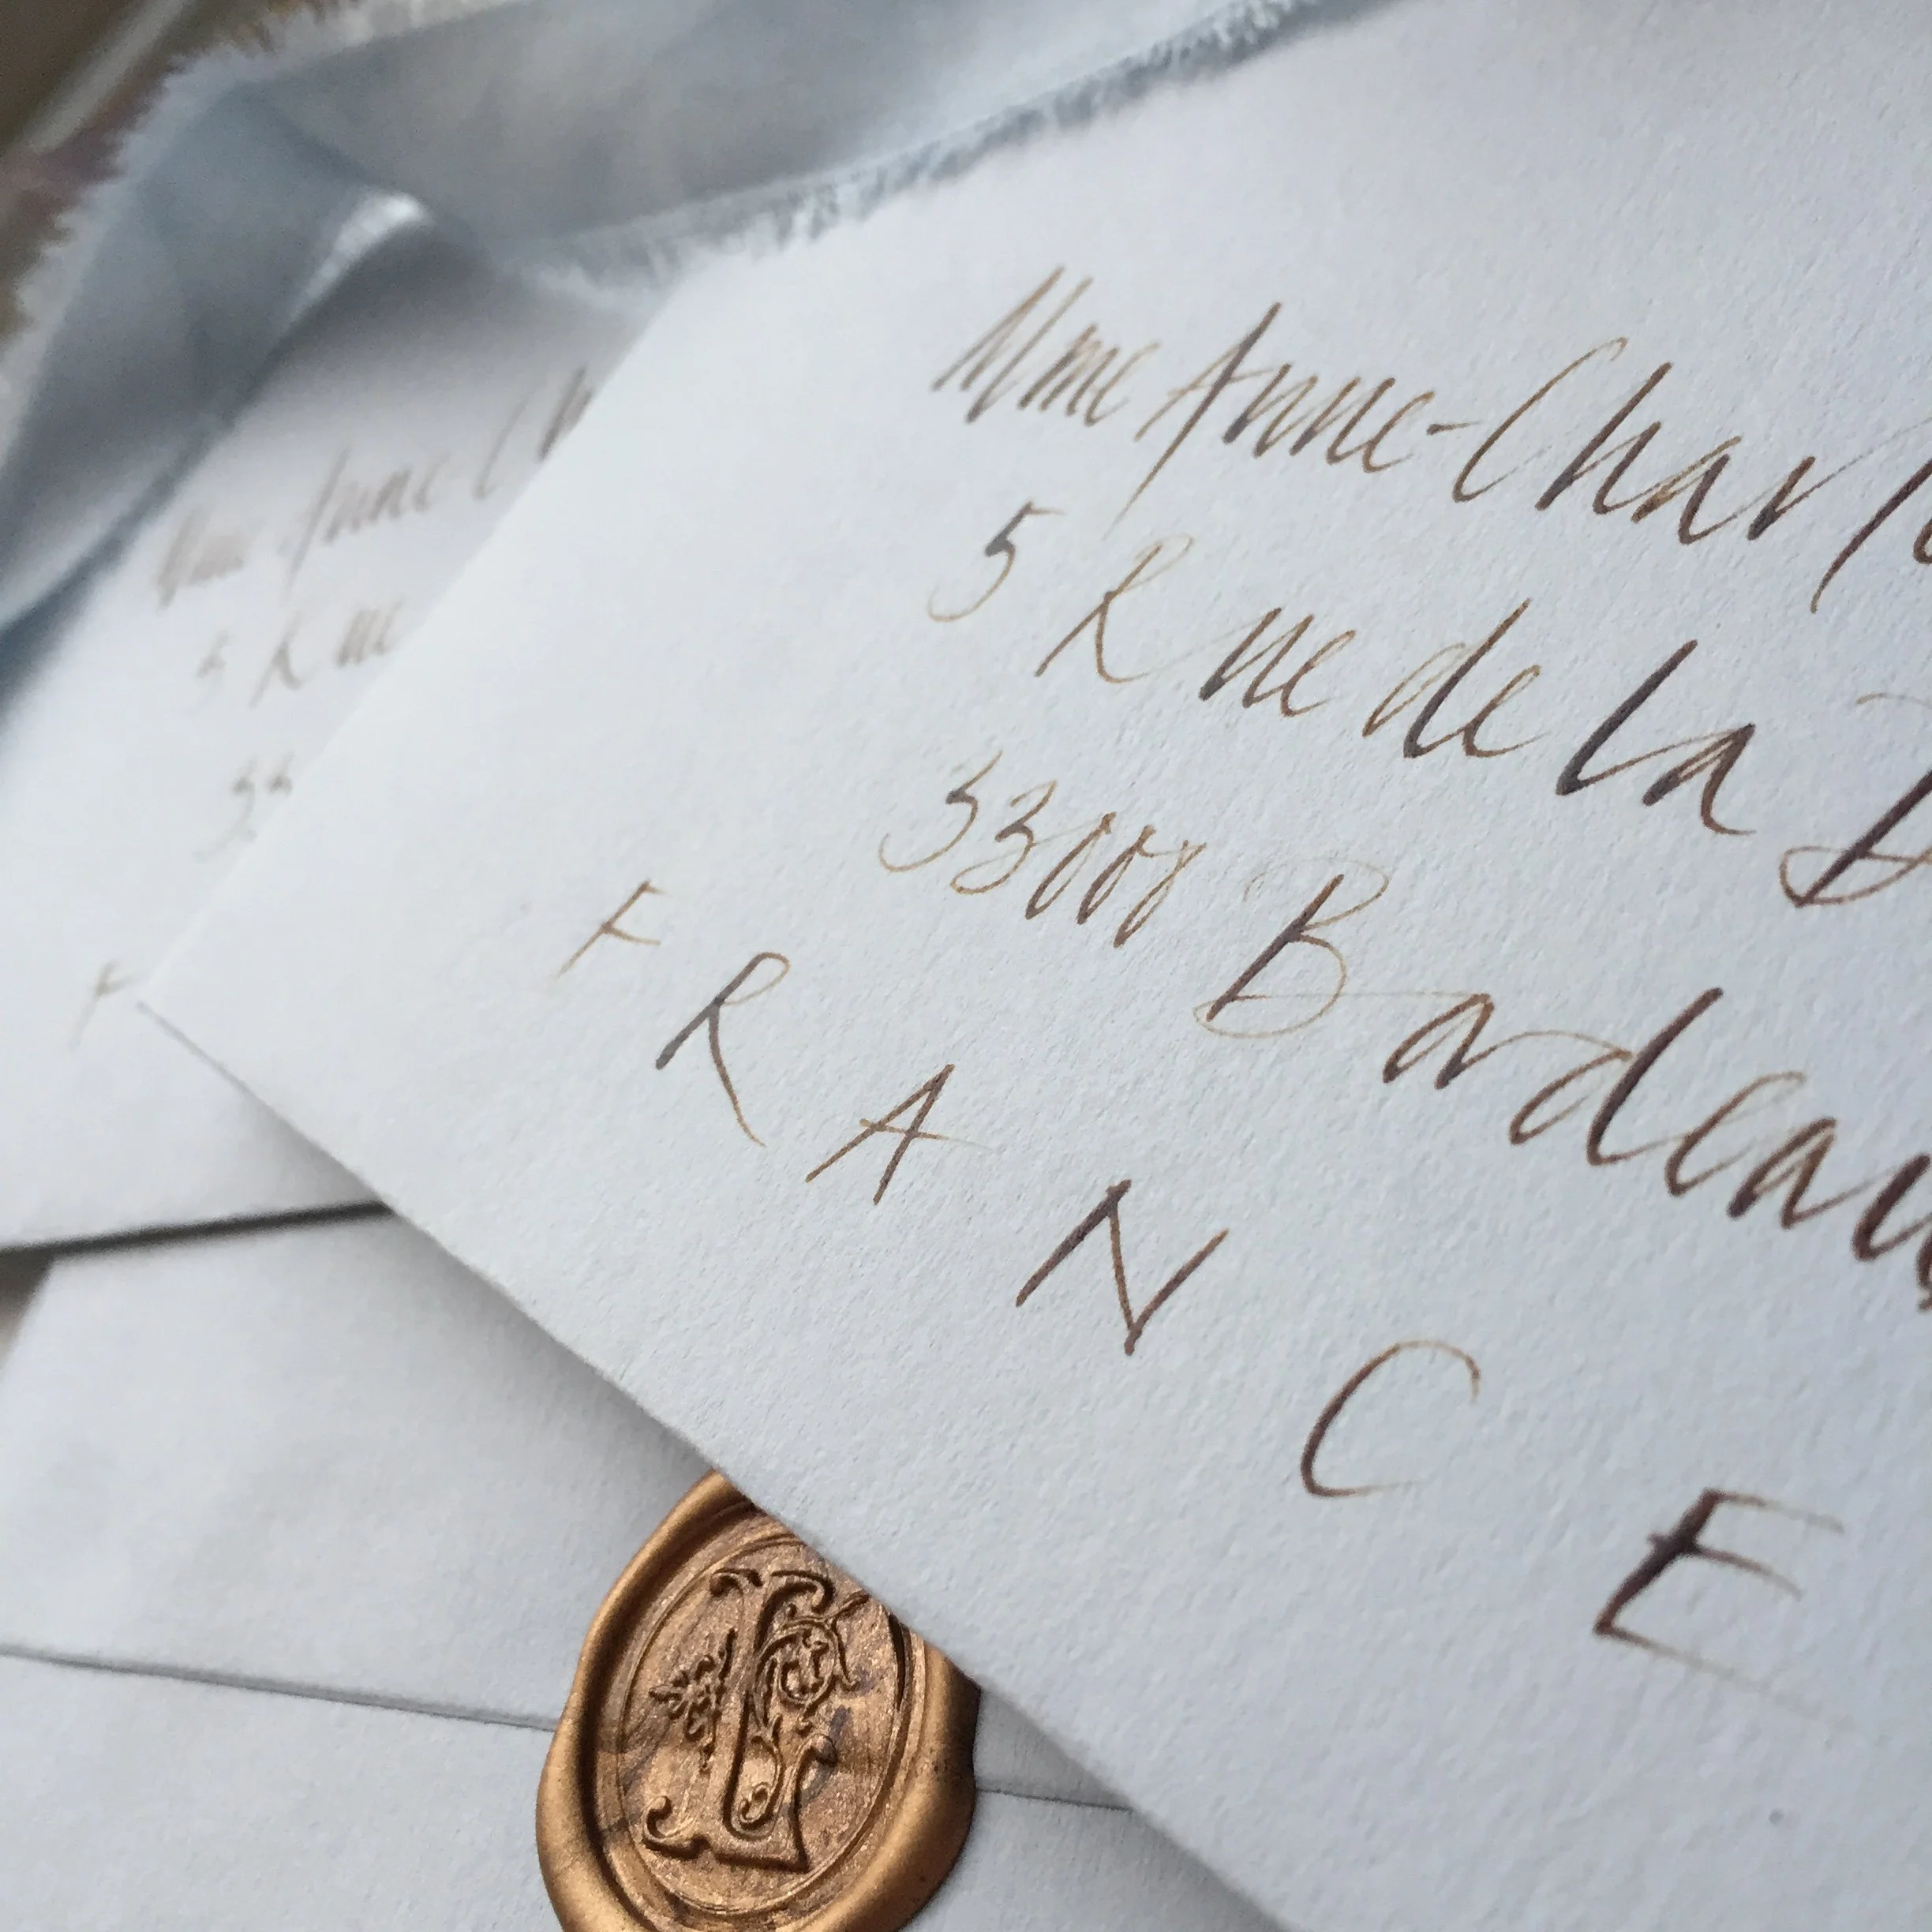 Mme Anne-Charl
5 Rue de la B
33000 Bordeau
FRANCE
Mme Anne-Ch
5 Rue
33
F
L